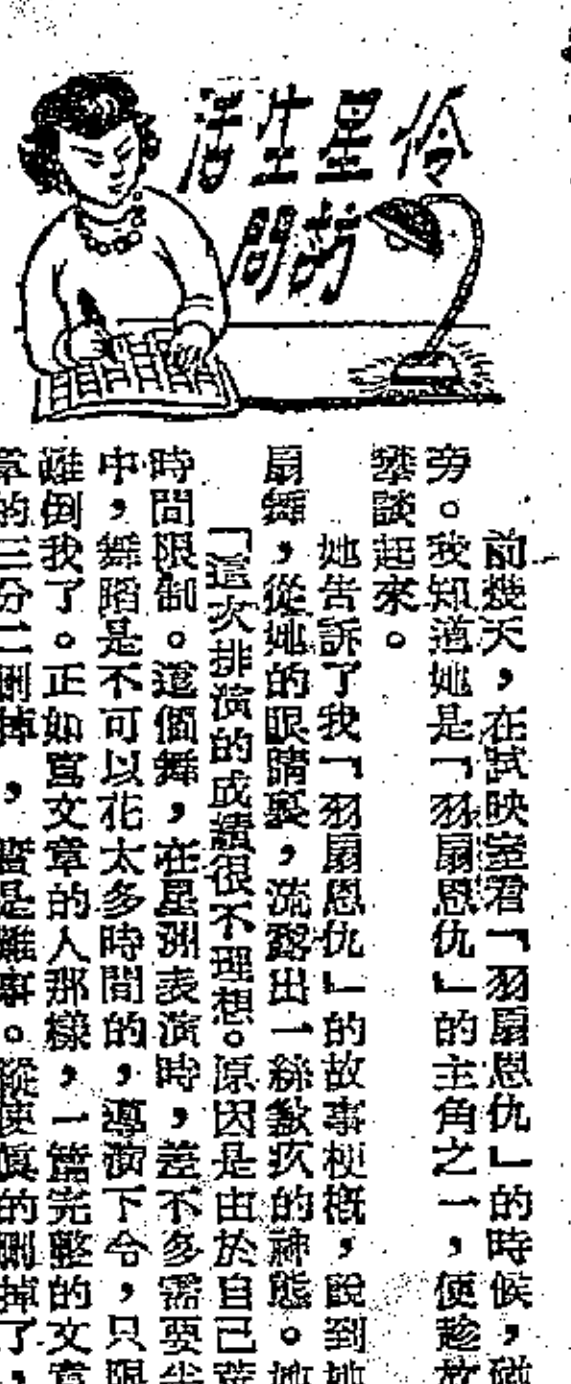 伶星生活
前幾天，在試映室看「羽扇恩仇」的時候，碰
旁。我知道她是「羽扇恩仇」的主角之一，便趁放
攀談起來。
她告訴了我「羽扇恩仇」的故事梗概，說到她
扇舞，從她的眼睛裏，流露出一絲歉疚的神態。她
「這次排演的成績很不理想。原因是由於自己荒
時間限制。這個舞，在星洲表演時，差不多需要半
中，舞蹈是不可以花太多時間的，導演下令，只限
難倒我了。正如寫文章的人那樣，一篇完整的文章
章的三分二刪掉，暫是難事。縱使眞的刪掉了，